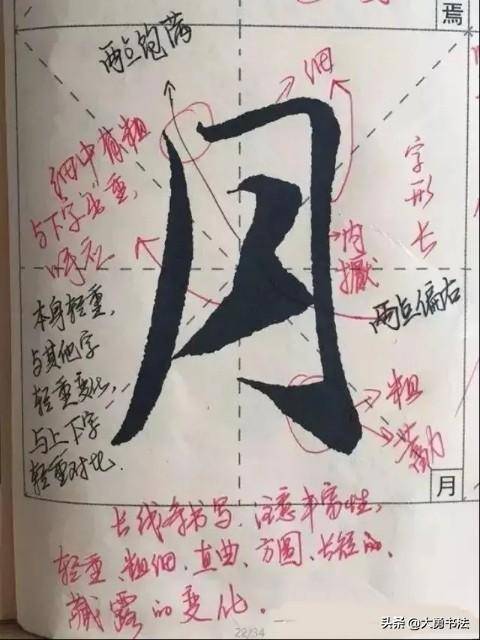 焉
两点饱满
细
细中有粗
与下字轻重,
呼应
字形长
内擫
两点偏右
本身轻重,
与其他字
轻重变化,
与上下字
轻重对比.
粗
月
月
长线条书写,注意丰富性,
轻重、粗细、直曲、方圆、长短的,
藏露的变化.
22/34
头条 @大勇书法